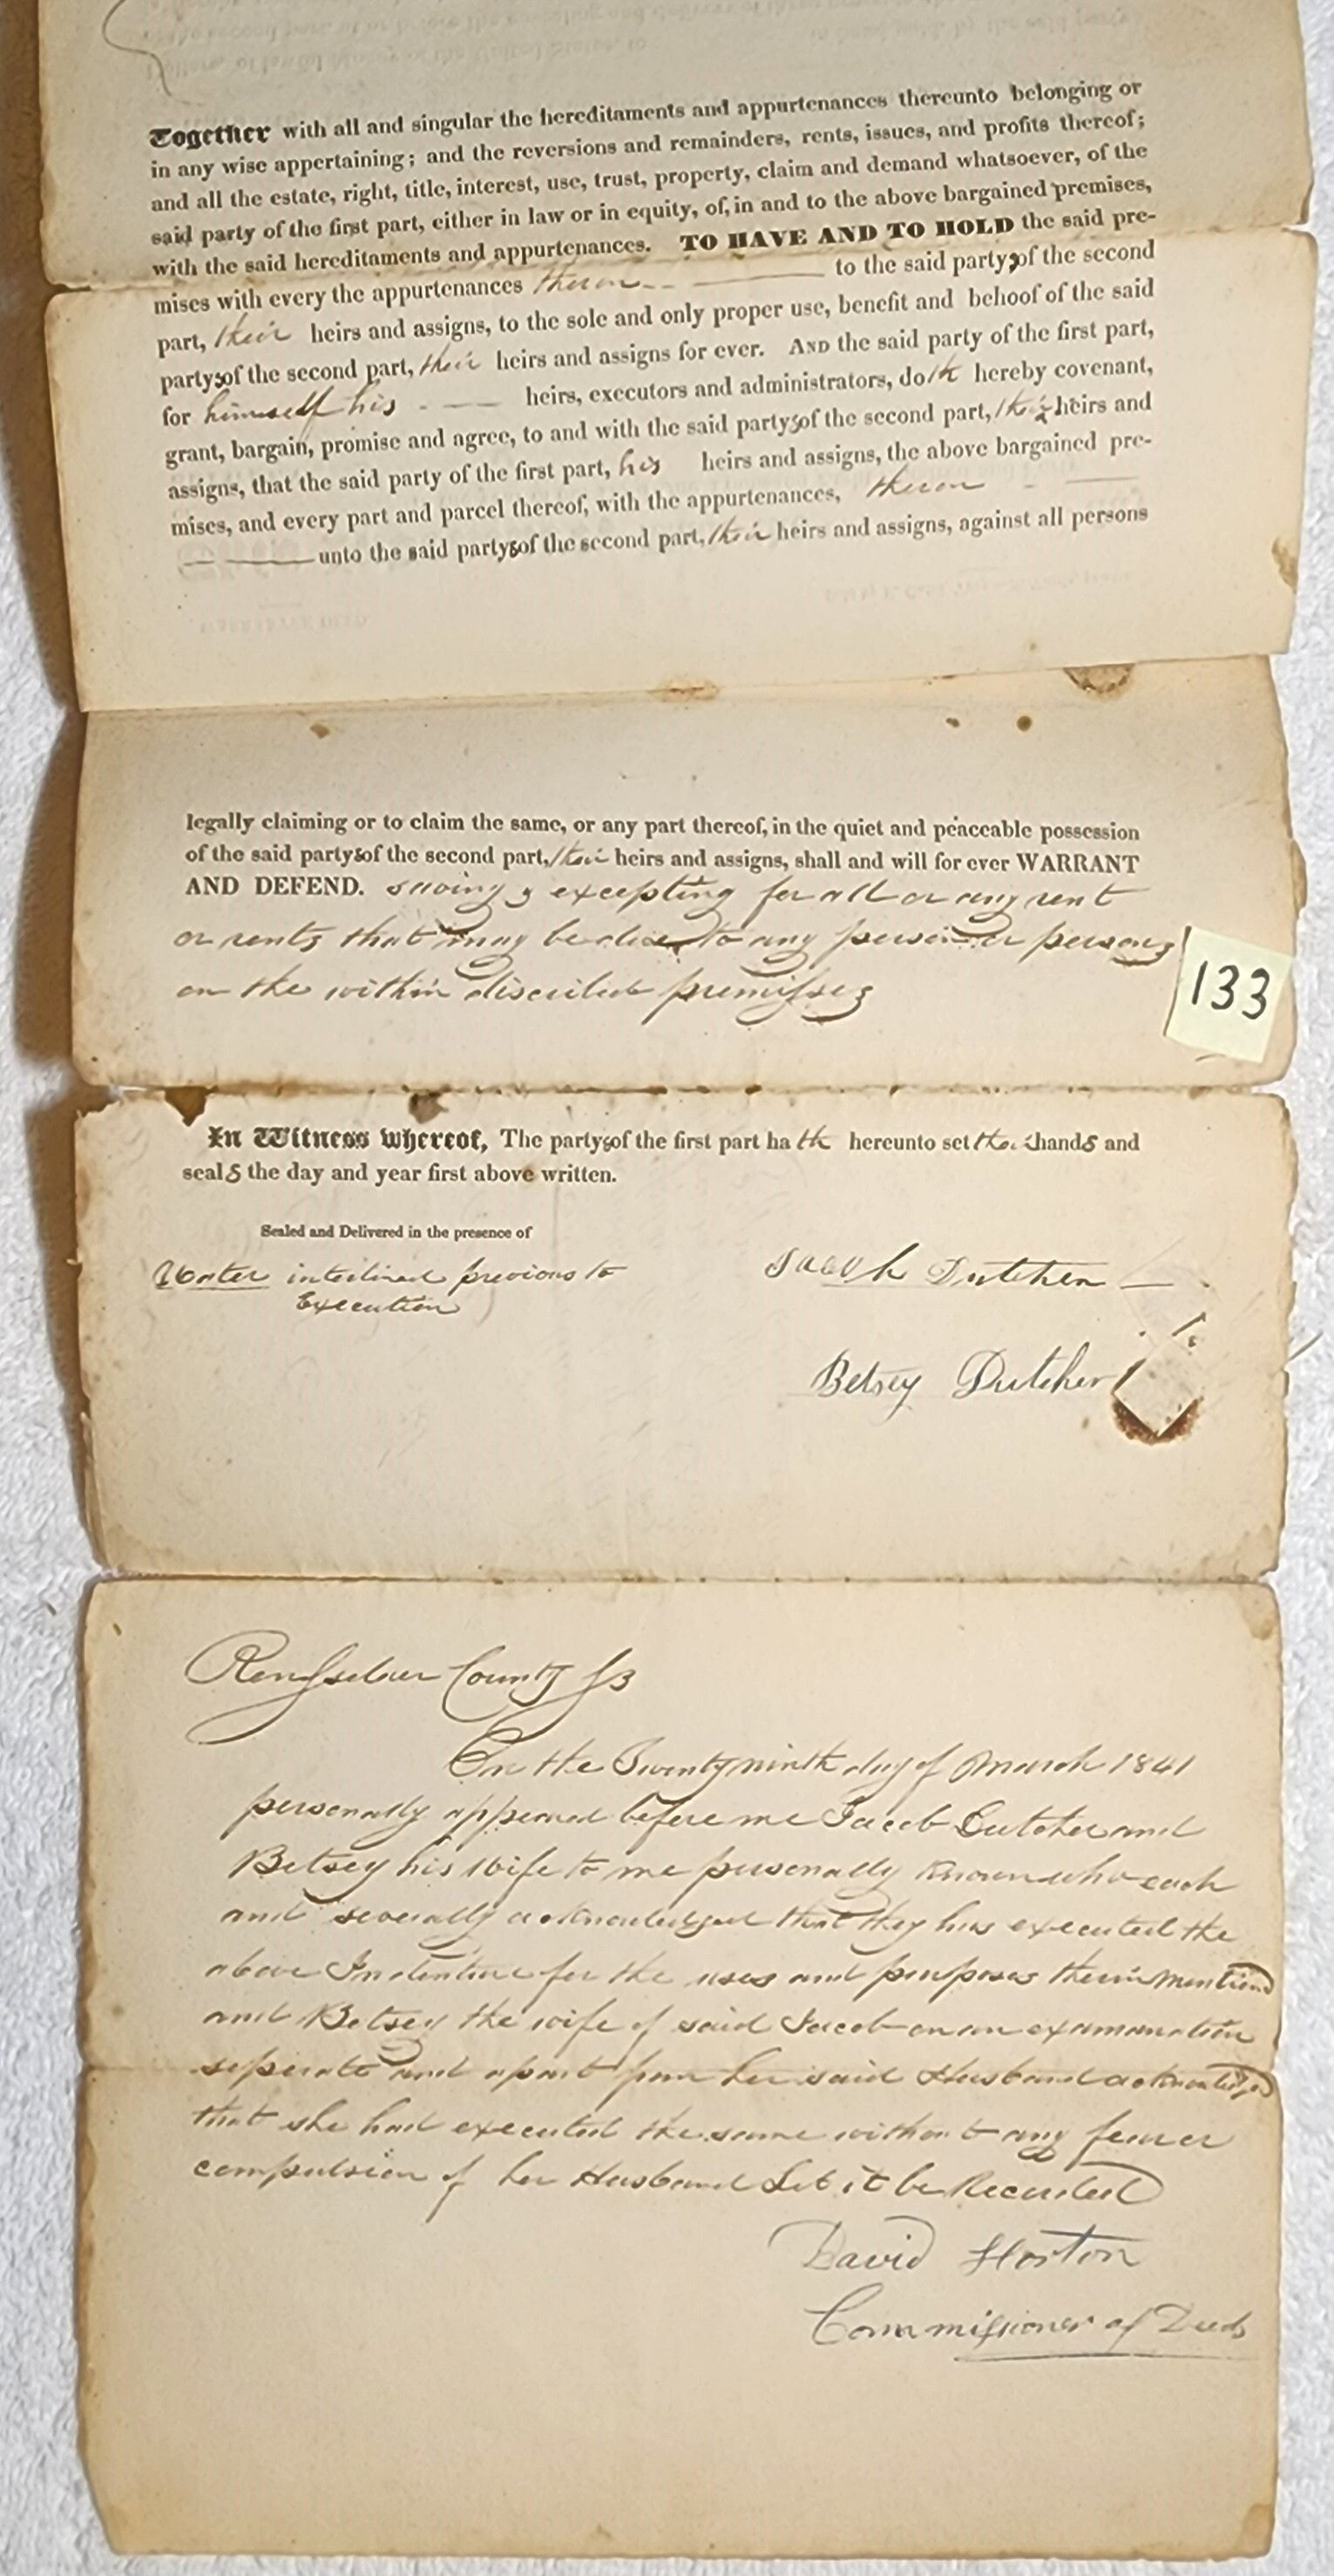 Together with all and singular the hereditaments and appurtenances thereunto belonging or
in any wise appertaining; and the reversions and remainders, rents, issues, and profits thereof;
and all the estate, right, title, interest, use, trust, property, claim and demand whatsoever, of the
said party of the first part, either in law or in equity, of, in and to the above bargained premises,
with the said hereditaments and appurtenances. TO HAVE AND TO HOLD the said pre-
mises with every the appurtenances theron to the said partys of the second
part, their heirs and assigns, to the sole and only proper use, benefit and behoof of the said
partys of the second part, their heirs and assigns for ever. AND the said party of the first part,
for himself his heirs, executors and administrators, doth hereby covenant,
grant, bargain, promise and agree, to and with the said partys of the second part, their heirs and
assigns, that the said party of the first part, his heirs and assigns, the above bargained pre-
mises, and every part and parcel thereof, with the appurtenances, theron
unto the said partys of the second part, their heirs and assigns, against all persons
legally claiming or to claim the same, or any part thereof, in the quiet and peaceable possession
of the said partys of the second part, their heirs and assigns, shall and will for ever WARRANT
AND DEFEND. saving & excepting for all or any rent
or rents that may be due to any person or persons
on the within discribed premisses
133
In Witness whereof, The partys of the first part hath hereunto set their hands and
seals the day and year first above written.
Sealed and Delivered in the presence of
interlined previous to
Execution
Jacob Dutcher
Betsey Dutcher
Rensselaer County Ss
On the Twenty ninth day of March 1841
personally appeared before me Jacob Dutcher and
Betsey his Wife to me personally Known who each
and severally acknowledged that they has executed the
above Indenture for the uses and purposes therin mentiond
and Betsey the wife of said Jacob on an examanation
seperate and apart from her said Husband acknowledged
that she had executed the same without any fear or
compulsion of her Husband Let it be Recorded
David Horton
Commissioner of Deeds